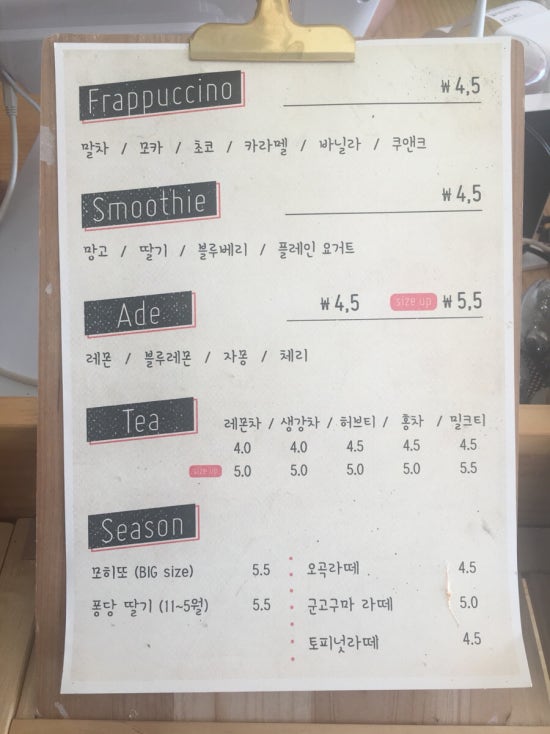 Frappuccino ₩4,5
말차 / 모카 / 초코 / 카라멜 / 바닐라 / 쿠앤크
Smoothie ₩4,5
망고 / 딸기 / 블루베리 / 플레인 요거트
Ade ₩4,5 size up ₩5,5
레몬 / 블루레몬 / 자몽 / 체리
Tea 레몬차 / 생강차 / 허브티 / 홍차 / 밀크티
4.0 4.0 4.5 4.5 4.5
size up 5.0 5.0 5.0 5.0 5.5
Season
모히또 (BIG size) 5.5
퐁당 딸기 (11~5월) 5.5
오곡라떼 4.5
군고구마 라떼 5.0
토피넛라떼 4.5